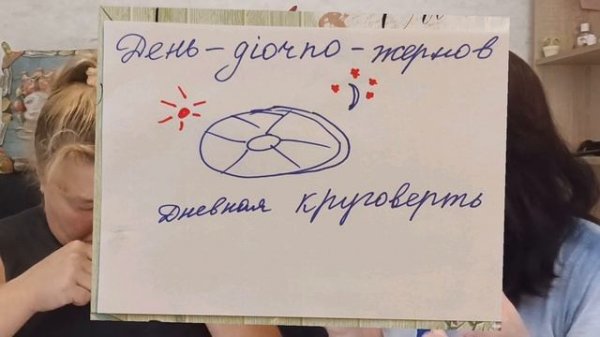 День-діочпо-жермов
Дневная круговерть